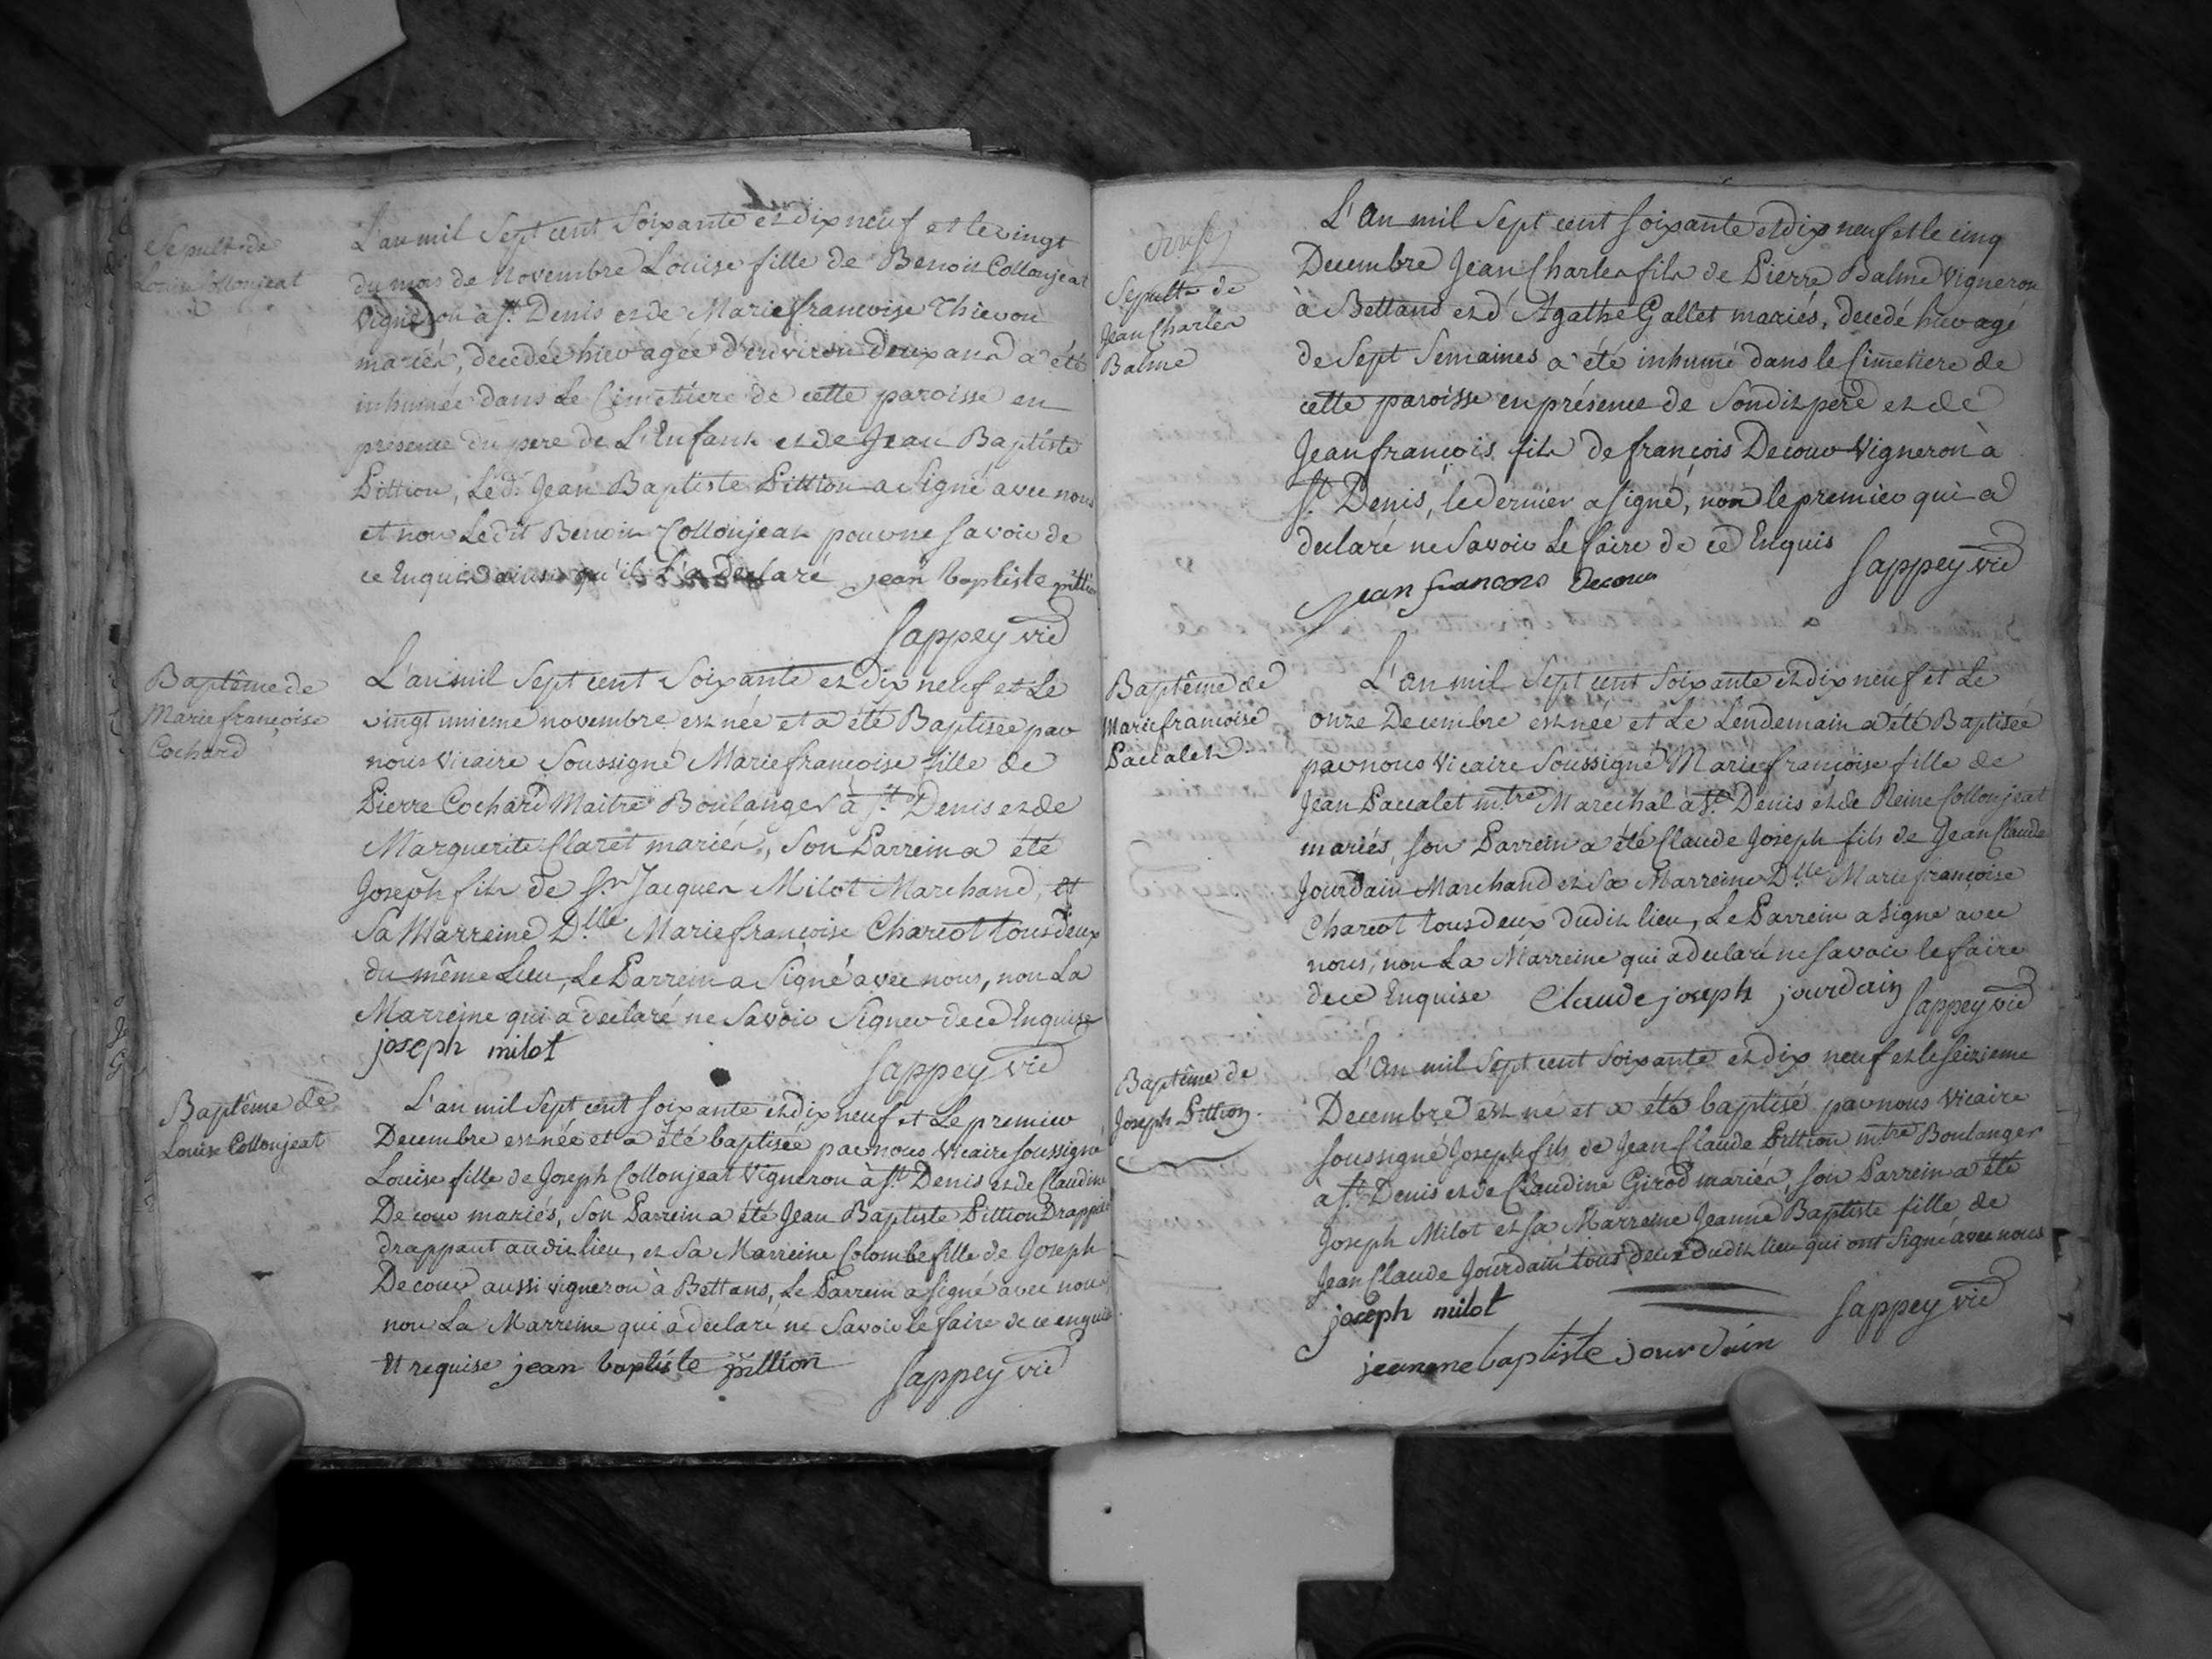 Sepult.re de
Louise Collonjeat
L'an mil Sept cent Soixante et dix neuf et le vingt
du mois de Novembre Louise fille de Benoit Collonjeat
vigneron à St. Denis et de Marie françoise Thievon
mariés, decedée hier agée d'environ deux ans a été
inhumée dans Le Cimetiere de cette paroisse en
presence du pere de L'Enfant et de Jean Baptiste
Pittion, Led. Jean Baptiste Pittion a Signé avec nous
et non Ledit Benoit Collonjeat pour ne savoir de
ce Enquis ainsi qu'il L'a declaré jean baptiste pittion
Sappey vic
Baptême de
Marie françoise
Cochard
L'an mil Sept cent Soixante et dix neuf et Le
vingt unieme novembre est née et a été Baptisée par
nous Vicaire Soussigné Marie françoise fille de
Pierre Cochard Maitre Boulanger à St. Denis et de
Marguerite Claret mariés, Son Parrein a été
Joseph fils de Sr. Jacques Milot Marchand, et
Sa Marreine Dlle. Marie françoise Charcot tous deux
du même Lieu, Le Parrein a Signé avec nous, non La
Marreine qui a declaré ne Savoir Signer de ce Enquise
joseph milot
Sappey vic
Baptême de
Louise Collonjeat
L'an mil Sept cent soixante et dix neuf et Le premier
Decembre est née et a été baptisée par nous Vicaire soussigné
Louise fille de Joseph Collonjeat Vigneron à St. Denis et de Claudine
Decour mariés, Son Parrein a été Jean Baptiste Pittion
drappant audit lieu, et Sa Marreine Colombe fille de Joseph
Decour aussi vigneron à Bettans, Le Parrein a signé avec nous
non La Marreine qui a declaré ne Savoir le faire de ce enquise
Et requise jean baptiste pittion Sappey vic
Sepult.re de
Jean Charles
Balme
L'an mil Sept cent soixante et dix neuf et le cinq
Decembre Jean Charles fils de Pierre Balme Vigneron
à Bettans et d'Agathe Gallet mariés, decedé hier agé
de Sept Semaines a été inhumé dans le Cimetiere de
cette paroisse en présence de Son dit père et de
Jean françois fils de françois Decour Vigneron à
St. Denis, le dernier a signé, non le premier qui a
declaré ne Savoir Le faire de ce Enquis
Sappey vic
jean francois decour
Baptême de
Marie françoise
Paccalet
L'an mil Sept cent Soixante et dix neuf et Le
onze Decembre est née et Le Lendemain a été Baptisée
par nous Vicaire Soussigné Marie françoise fille de
Jean Paccalet mtre. Marechal à St. Denis et de Reine Collonjeat
mariés, son Parrein a été Claude Joseph fils de Jean Claude
Jourdain Marchand et Sa Marreine Dlle. Marie françoise
Charcot tous deux dudit lieu, Le Parrein a signé avec
nous, non La Marreine qui a declaré ne savoir le faire
de ce Enquise Claude joseph jourdain Sappey vic
Baptême de
Joseph Pittion
L'an mil Sept cent Soixante et dix neuf et le seizieme
Decembre est né et a été baptisé par nous Vicaire
soussigné Joseph fils de Jean Claude Pittion mtre. Boulanger
à St. Denis et de Claudine Girod mariés, son Parrein a été
Joseph Milot et sa Marreine Jeanne Baptiste fille de
Jean Claude Jourdain tous deux dudit lieu qui ont Signé avec nous
joseph milot
Sappey vic
jeanne baptiste jourdain